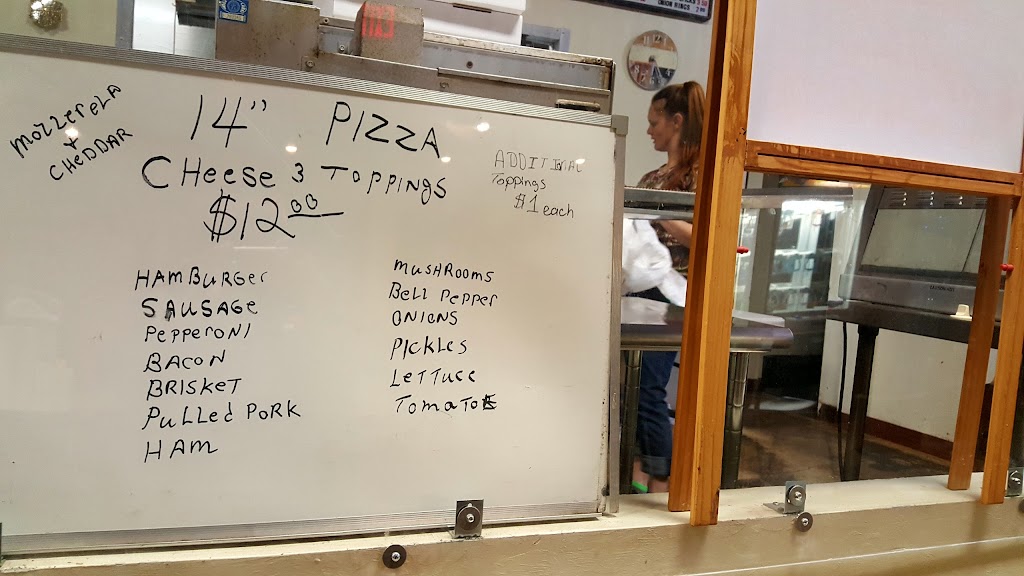 MOZZERELA
+
CHEDDAR
14" PIZZA
CHeese 3 TOPPINgS
$12.00
ADDITINAL
Toppings
$1 each
HAMBURGer
SAUSAGe
PePPeRONI
BACON
BRISKET
PULLed PORK
HAM
MUSHROOMS
BeLL PePPer
ONIONS
PICKLeS
LeTTUCe
TOMATOE
ONION RINGS